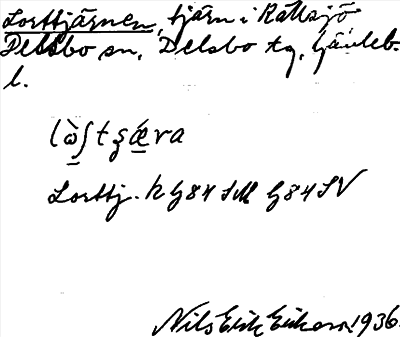 Lorttjärnen, tjärn i Källsjö
Delsbo sn, Delsbo tg, Gävleb.
l.
Lorttj. h G84 SM G84 SV
Nils Erik Eriksson 1936.